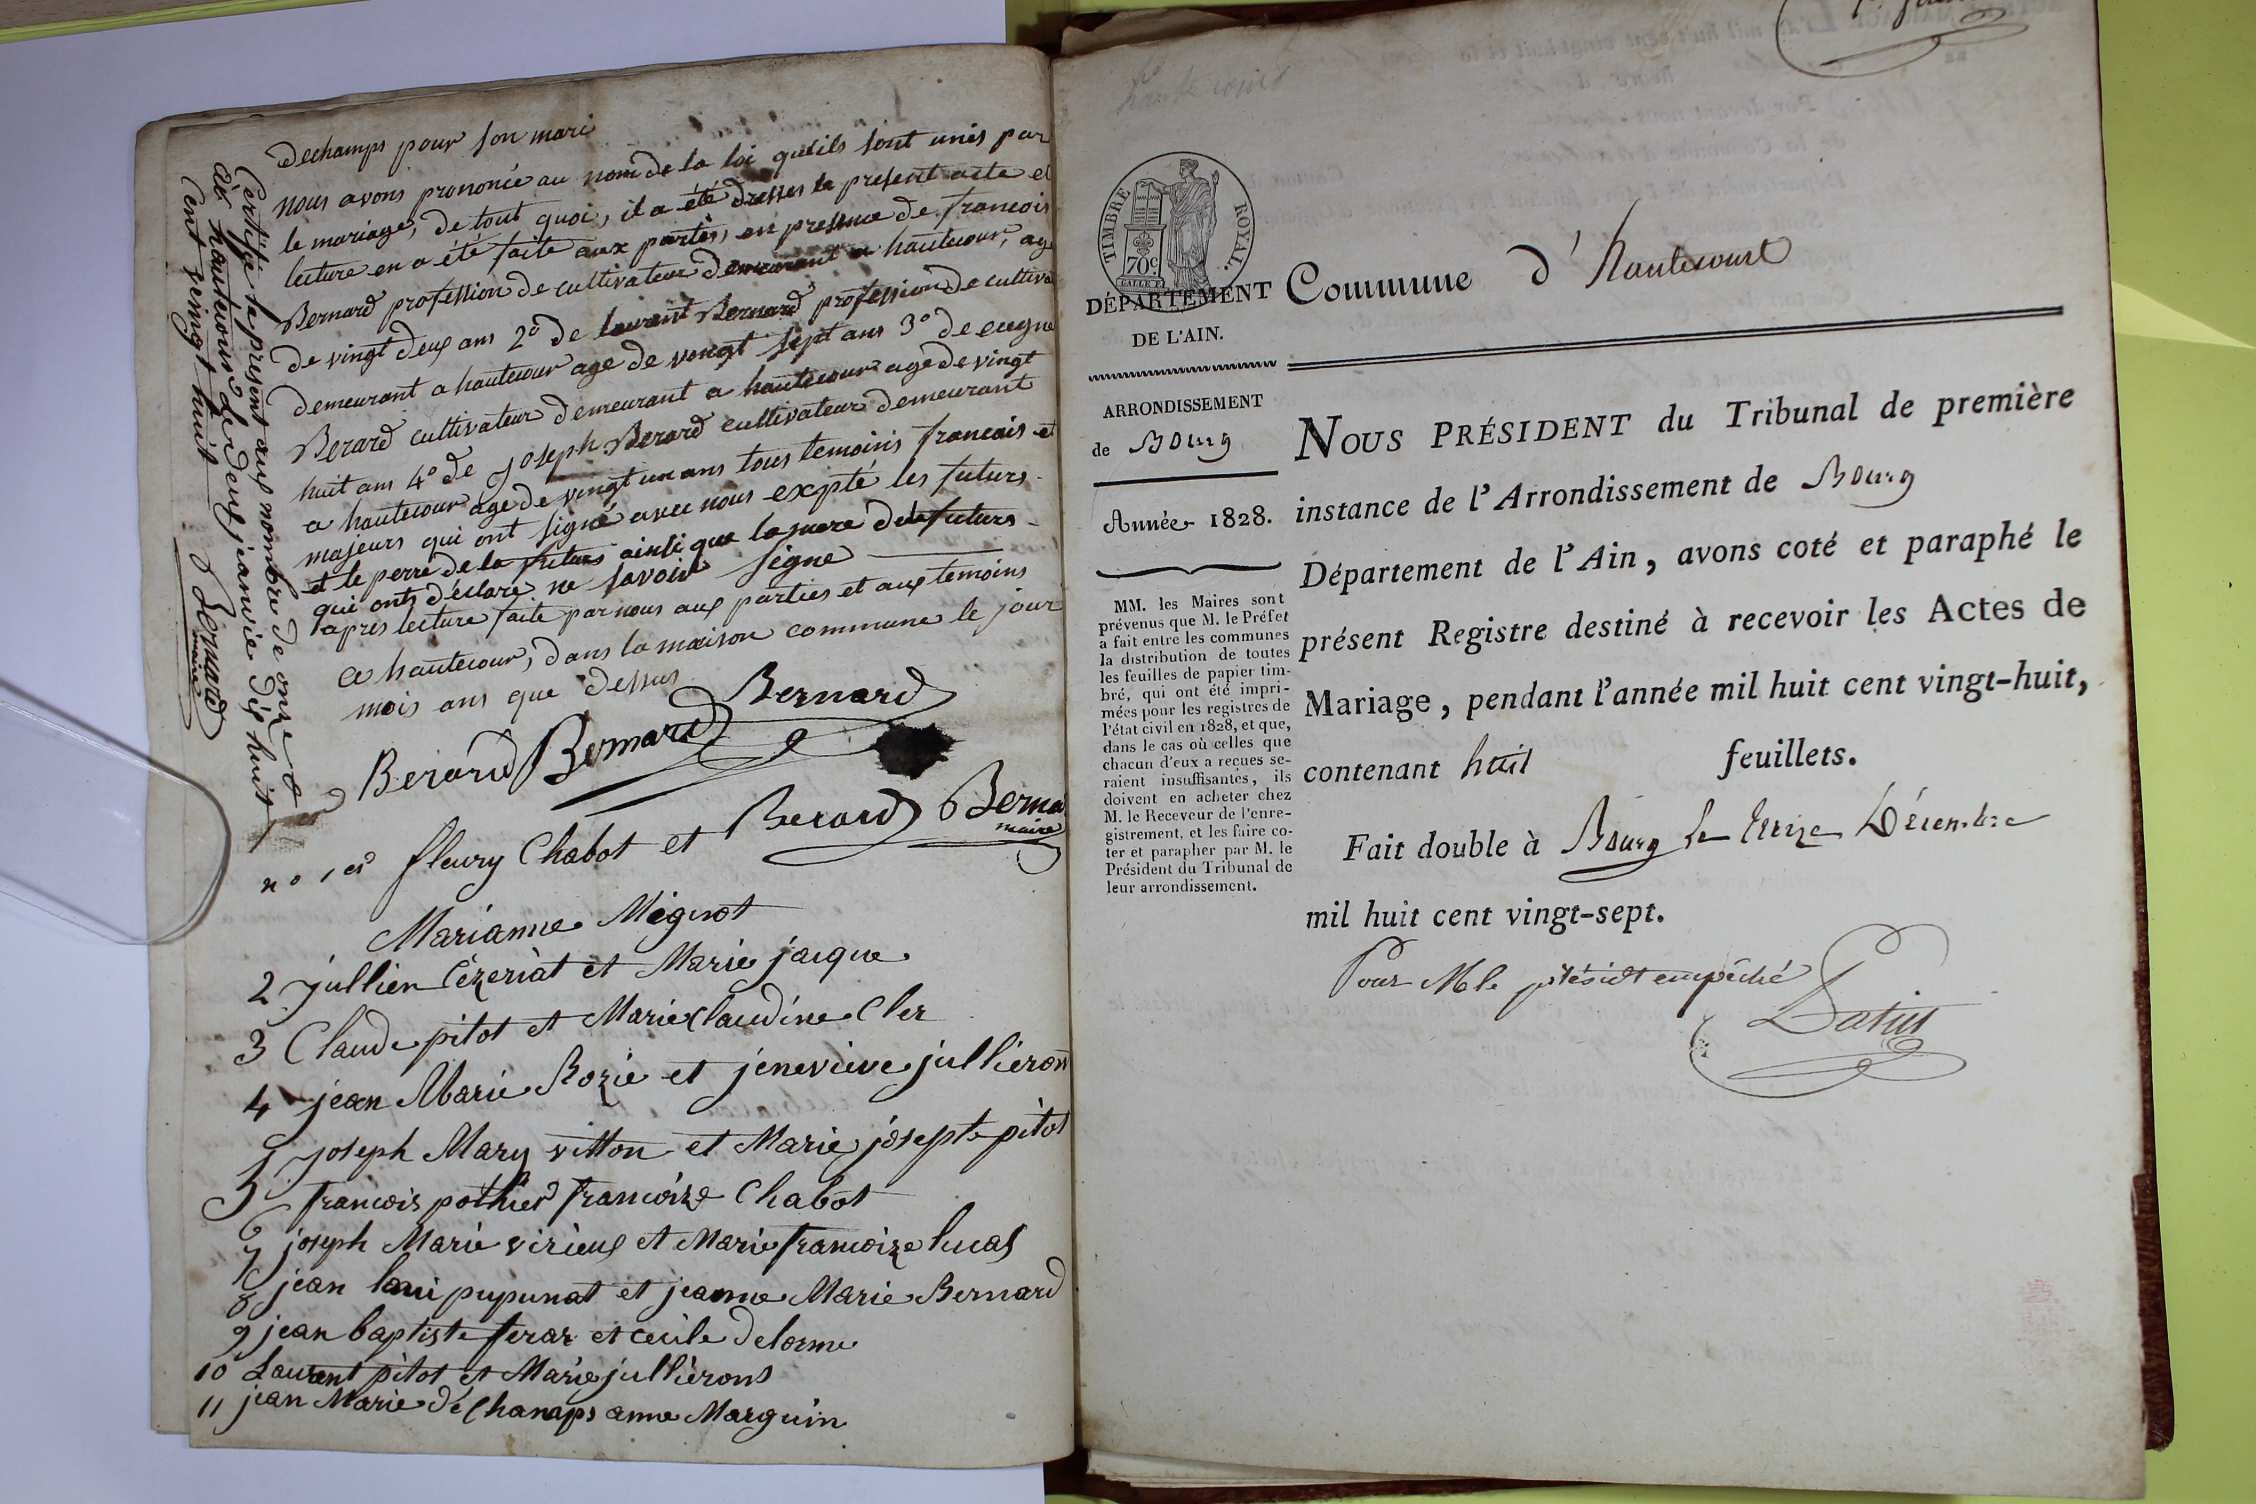 dechamps pour son mari
nous avons prononcé au nom de la loi qu'ils sont unis par
le mariage, de tout quoi, il a été dresses le present acte et
lecture en a été faite aux partès, en presence de francois
Bernard profession de cultivateur demeurant a hautecour, age
de vingt deux ans 2º de laurent Bernard profession de cultiva
demeurant a hautecour age de vengt sept ans 3º de
Berard cultivateur demeurant a hautecour age de vingt
huit ans 4º de joseph Berard cultivateur demeurant
a hautecour age de vingt un ans tous temoins francais et
majeurs qui ont signé avec nous expté les futurs
et le perre de la future ainsi que la mere de la future
qui onts déclare ne savoir signe
après lecture faite par nous aux parties et aux temoins
a hautecour, dans la maison commune le jour
mois ans que dessus
Bernard
Berard Bernard
Berard Berna
maire
nº 1er fleury Chabot et
Marianne Mignot
2 jullien Cézeriat et Marie jacque
3 Claude pitot et Marie Claudine Cler
4 jean Marie Rozie et jenevieve jullieron
5 joseph Mary vitton et Marie josephte pitot
francois pothier francoize Chabot
6
7 joseph Marie virieux et Marie francoize lucas
8 jean loui pupunat et jeanne Marie Bernard
9 jean baptiste ferar et cecile delorme
10 Laurent pitot et Marie jullièrons
11 jean Marie déchanaps anne Marguin
Certifie le present aux nombre de onze
à hautecour le deux janvié dix huit
Cent veingt huit
Bernard
maire
TIMBRE ROYAL.
70c
DÉPARTEMENT
DE L'AIN.
ARRONDISSEMENT
de Bourg
Année 1828.
MM. les Maires sont
prévenus que M. le Préfet
a fait entre les communes
la distribution de toutes
les feuilles de papier tim-
bré, qui ont été impri-
mées pour les registres de
l'état civil en 1828, et que,
dans le cas où celles que
chacun d'eux a reçues se-
raient insuffisantes, ils
doivent en acheter chez
M. le Receveur de l'enre-
gistrement, et les faire co-
ter et parapher par M. le
Président du Tribunal de
leur arrondissement.
Commune d'hautecourt
NOUS PRÉSIDENT du Tribunal de première
instance de l'Arrondissement de Bourg
Département de l'Ain, avons coté et paraphé le
présent Registre destiné à recevoir les Actes de
Mariage, pendant l'année mil huit cent vingt-huit,
contenant huit feuillets.
Fait double à Bourg le treize Décembre
mil huit cent vingt-sept.
Pour M le présidt empêché